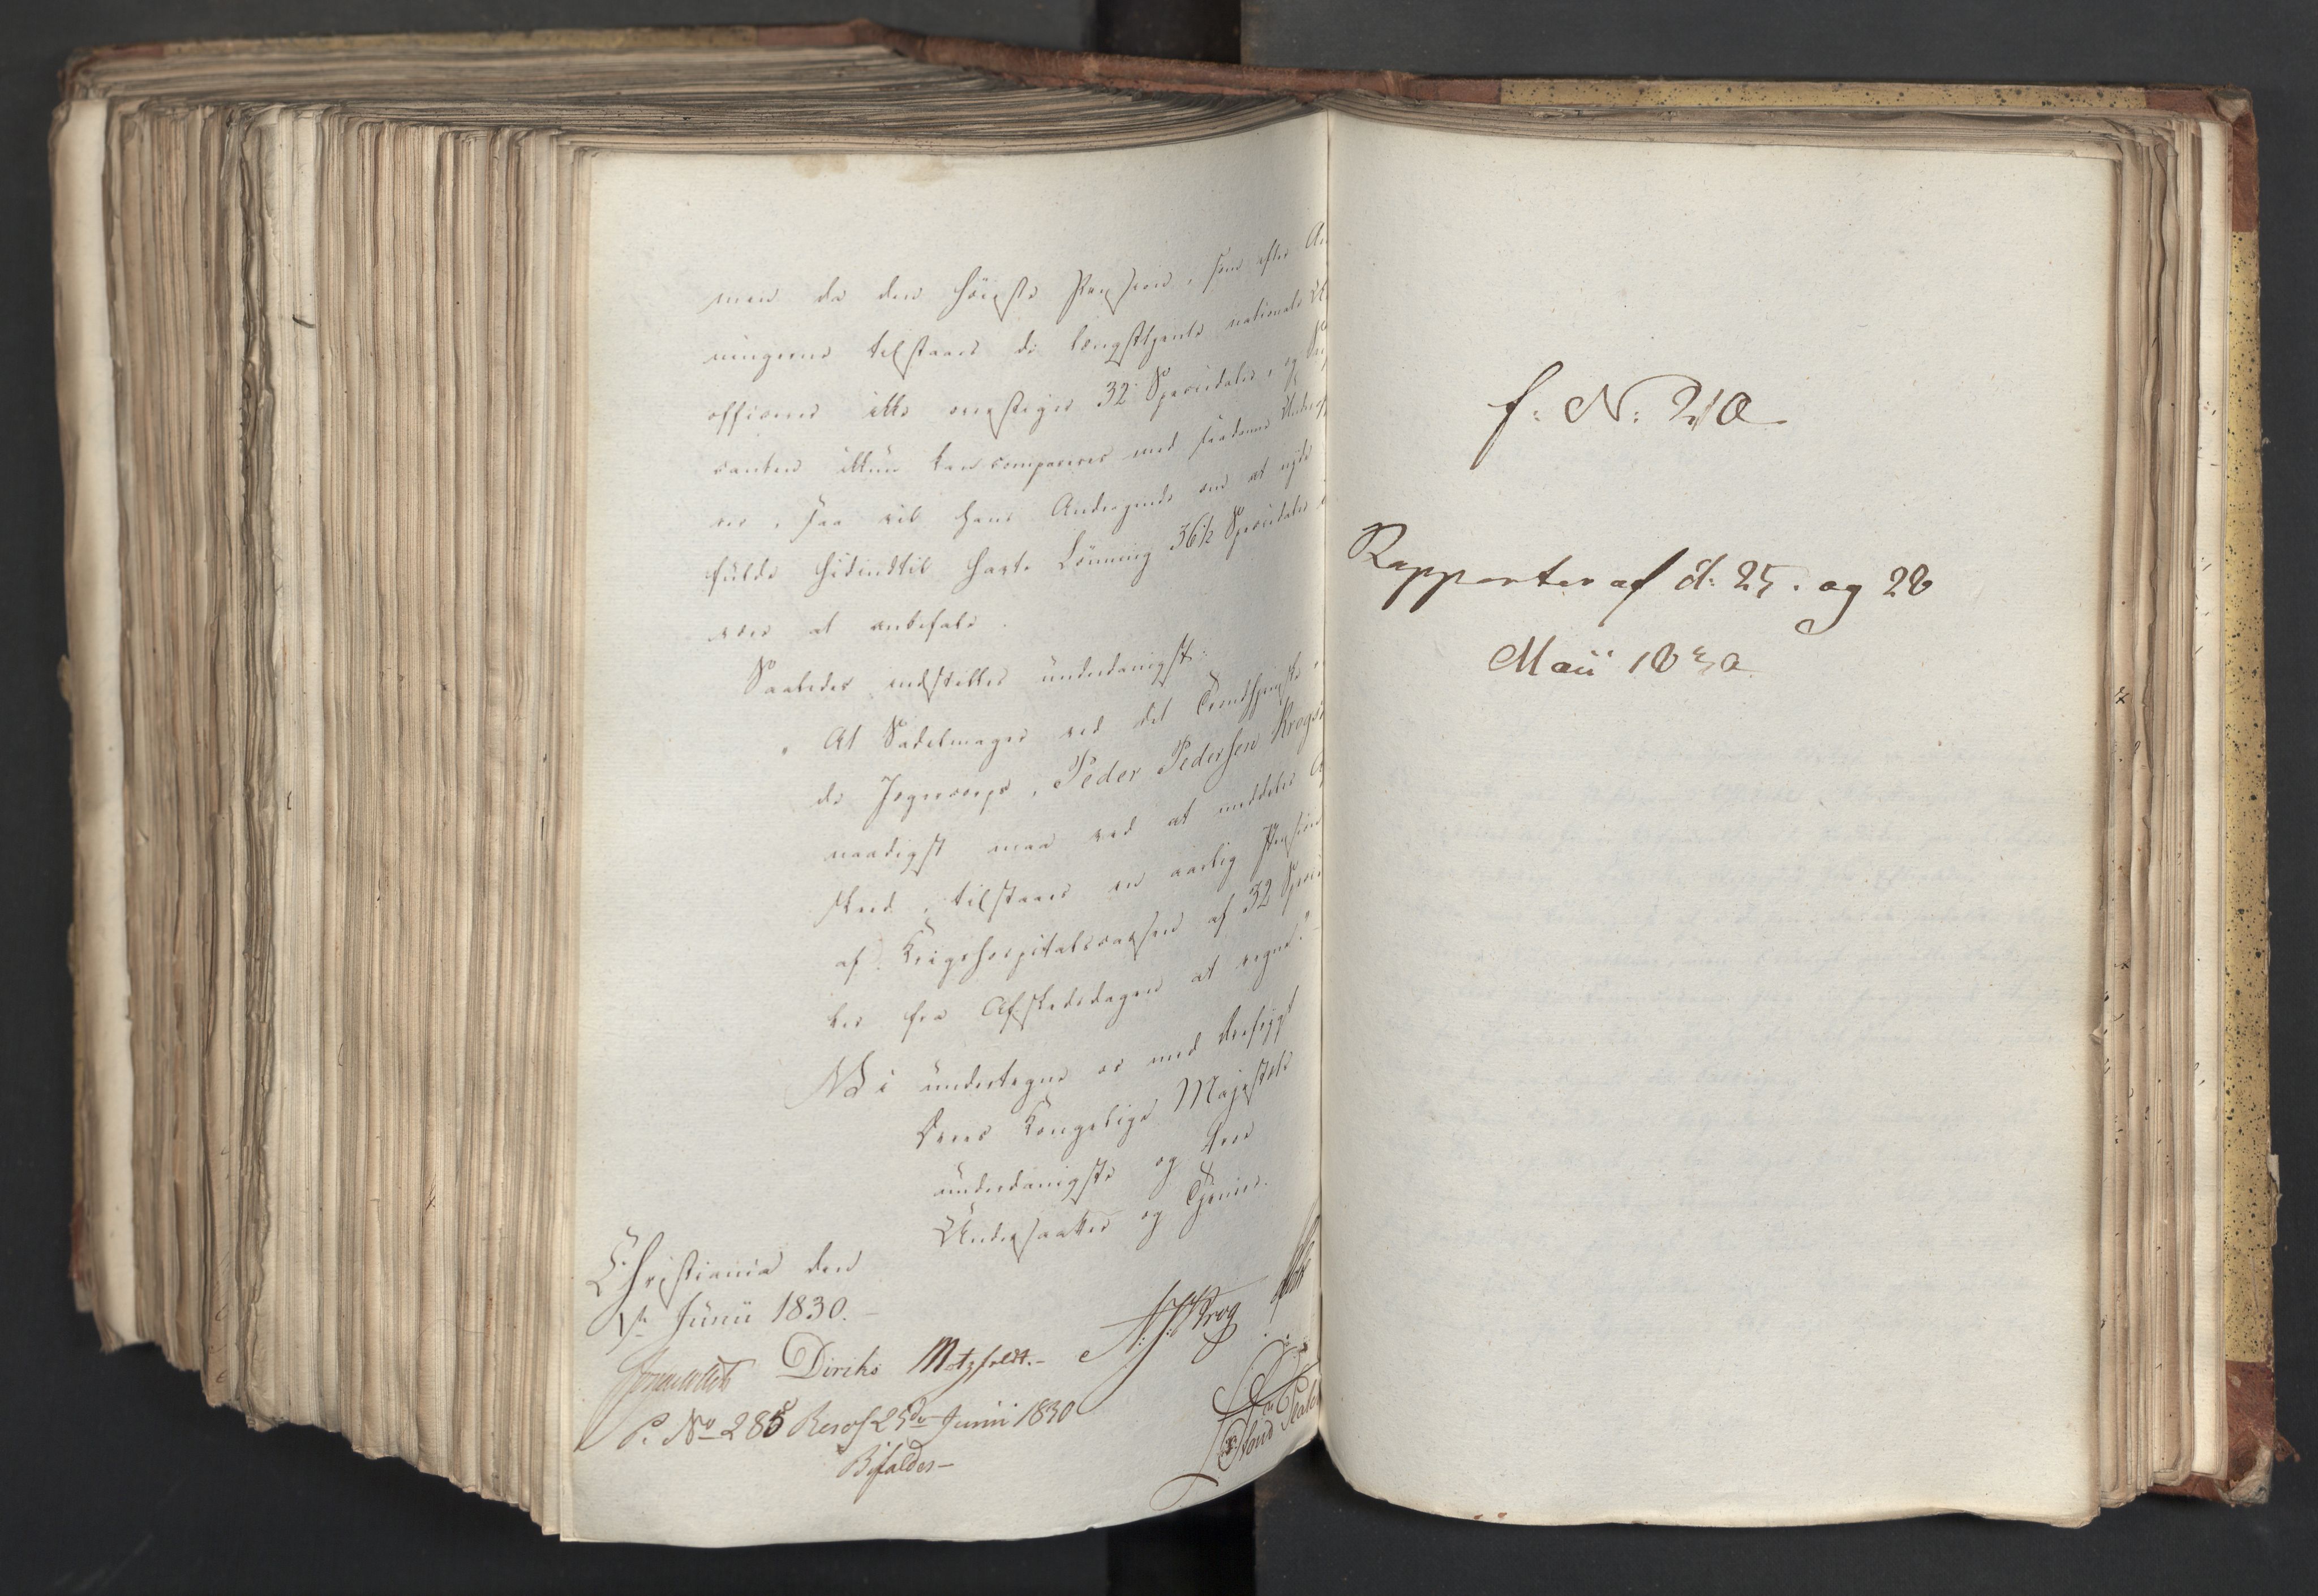 men da den høieste Pension, som efter An
ningerne tilstaaes de længsttjente nationale U
officerer ikke overstiger 32 Speciedaler, og
canten ikkun kan compareres med saadanne Underof
rer, saa vil hans Andragende om at nyde
fulde hidindtil havte Lönning 36½ Speciedaler
være at anbefale.
Saaledes indstilles ünderdanigst:
"At Sadelmager ved det Trondhjemske
de Jægercorps, Peder Pedersen Krogs
naadigst maa ved at meddeles A
skeed, tilstaaes en aarlig Pension
af Krigshospitalscassen af 32 Specie
ler fra Afskedsdagen at regne."
Vi ündertegne os med dybeste
Deres Kongelige Majestets
ünderdanigste og troe
Undersaatter og Tjenere.
Christiania den
Junii 1830.
Diriks Motzfeldt.
P. No 285 Resol 25de Junii 1830
Bifaldes
f: N: 210
Rapporter af d: 25. og 28
Maii 1830